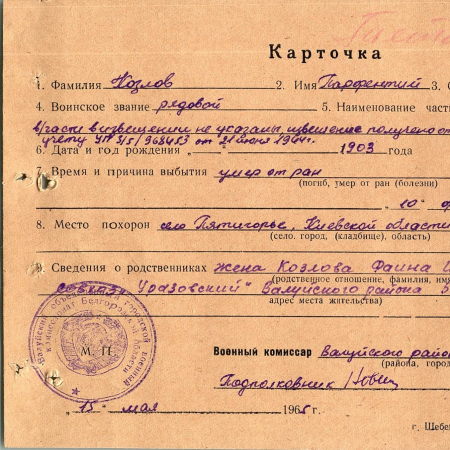 Карточка
1. Фамилия Козлов 2. Имя Парфентий 3. О
4. Воинское звание рядовой 5. Наименование част
в/части в извещении не указаны, извещение получено от
учету УП 3/5/968453 от 21 июня 1944г.
6. Дата и год рождения 1903 года
7. Время и причина выбытия умер от ран
(погиб, умер от ран (болезни)
„ 10 "
8. Место похорон село Пятигорье, Киевской области
(село, город, (кладбище), область)
9. Сведения о родственниках жена Козлова Фаина
(родственное отношение, фамилия, имя
Уразовский" Валуйского района
адрес места жительства)
М. П.
Военный комиссар Валуйского райо
(района, город
Подполковник
„ 15 " мая 1965 г.
г. Шебе